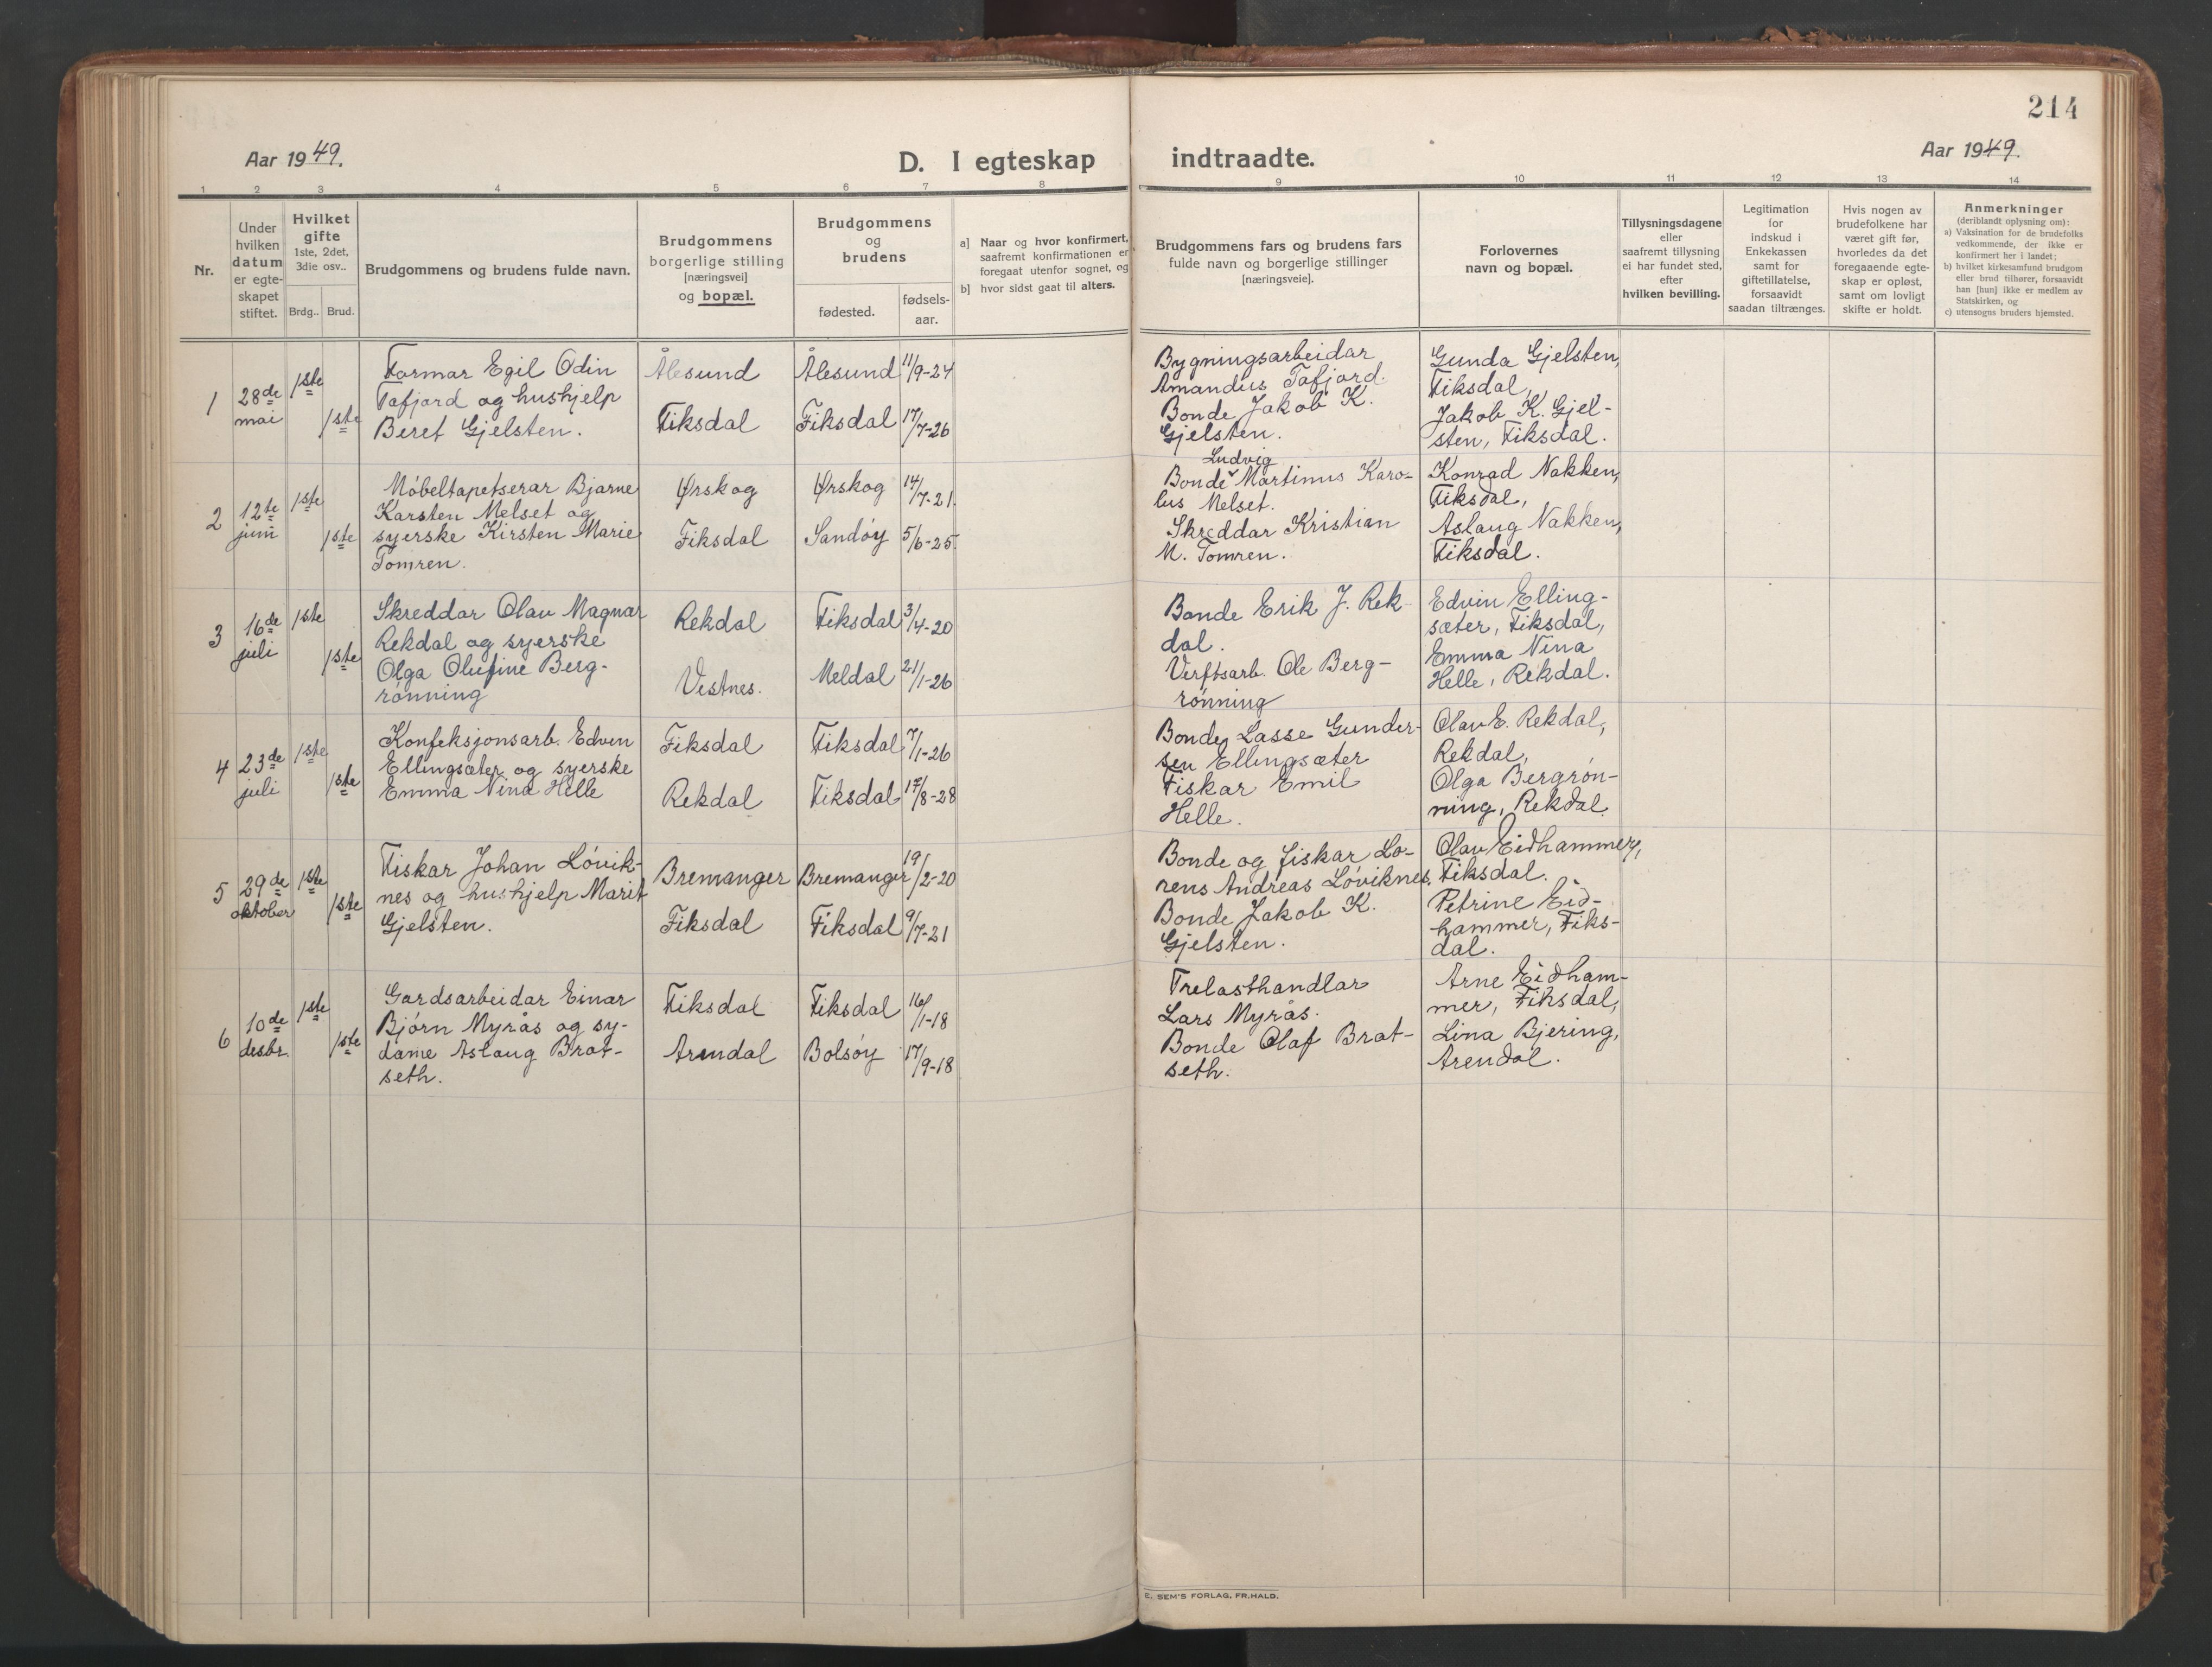 214
Aar 1949.
D. I egteskap
indtraadte.
Aar 1949.
1 2 3 4 5 6 7 8 9 10 11 12 13 14
Nr.
Under
hvilken
datum
er egte-
skapet
stiftet.
Hvilket
gifte
1ste, 2det,
3die osv..
Brdg.. Brud.
Brudgommens og brudens fulde navn.
Brudgommens
borgerlige stilling
[næringsvei]
og bopæl.
Brudgommens
og
brudens
fødested.
fødsels-
aar.
a] Naar og hvor konfirmert,
saafremt konfirmationen er
foregaat utenfor sognet, og
b] hvor sidst gaat til alters.
Brudgommens fars og brudens fars
fulde navn og borgerlige stillinger
[næringsveie].
Forlovernes
navn og bopæl.
Tillysningsdagene
eller
saafremt tillysning
ei har fundet sted,
efter
hvilken bevilling.
Legitimation
for
indskud i
Enkekassen
samt for
giftetillatelse,
forsaavidt
saadan tiltrænges.
Hvis nogen av
brudefolkene har
været gift før,
hvorledes da det
foregaaende egte-
skap er opløst,
samt om lovligt
skifte er holdt.
Anmerkninger
(deriblandt oplysning om):
a) Vaksination for de brudefolks
vedkommende, der ikke er
konfirmert her i landet;
b) hvilket kirkesamfund brudgom
eller brud tilhører, forsaavidt
han [hun] ikke er medlem av
Statskirken, og
c) utensogns bruders hjemsted.
1
28de
mai
1ste
1ste
Formar Egil Odin
Tafjord og hushjelp
Beret Gjelsten.
Ålesund
Fiksdal
Ålesund
Fiksdal
11/9-24
17/7-26
Bygningsarbeidar
Amandus Tafjord.
Bonde Jakob K.
Gjelsten.
Gunda Gjelsten,
Fiksdal,
Jakob K. Gjel-
sten, Fiksdal.
2
12te
juni
1ste
1ste
Møbeltapetserar Bjarne
Karsten Melset og
syerske Kirsten Marie
Tomren.
Ørskog
Fiksdal
Ørskog
Sandøy
14/7-21.
5/6-25.
Ludvig
Bonde Martinus Karo-
lus Melset.
Skreddar Kristian
M. Tomren.
Konrad Nakken,
Fiksdal,
Aslaug Nakken,
Fiksdal.
3
16de
juli
1ste
1ste
Skreddar Olav Magnar
Rekdal og syerske
Olga Olufine Berg-
rønning
Rekdal
Vestnes.
Fiksdal
Meldal
3/4-20
21/1-26
Bonde Erik J. Rek-
dal.
Verftsarb. Ole Berg-
rønning
Edvin Elling-
sæter, Fiksdal,
Emma Nina
Helle, Rekdal.
4
23de
juli
1ste
1ste
Konfeksjonsarb. Edven
Ellingsæter og syerske
Emma Nina Helle
Fiksdal
Rekdal
Fiksdal
Fiksdal
7/1-26
17/8-28
Bonde Lasse Gunder-
sen Ellingsæter
Fiskar Emil
Helle.
Olav E. Rekdal,
Rekdal,
Olga Bergrøn-
ning, Rekdal.
5
29de
oktober
1ste
1ste
Fiskar Johan Løvik-
nes og hushjelp Marit
Gjelsten.
Bremanger
Fiksdal
Bremanger
Fiksdal
19/2-20
9/7-21
Bonde og fiskar Lo-
rens Andreas Løviknes.
Bonde Jakob K.
Gjelsten.
Olav Eidhammer,
Fiksdal.
Petrine Eid-
hammer, Fiks-
dal.
6
10de
desbr.
1ste
1ste
Gardsarbeidar Einar
Bjørn Myrås og sy-
dame Aslaug Brat-
seth.
Fiksdal
Arendal
Fiksdal
Bolsøy
16/1-18
17/9-18
Trelasthandlar
Lars Myrås.
Bonde Olaf Brat-
seth.
Arne Eidham-
mer, Fiksdal,
Lina Bjering,
Arendal.
E. SEM'S FORLAG, FR.HALD.